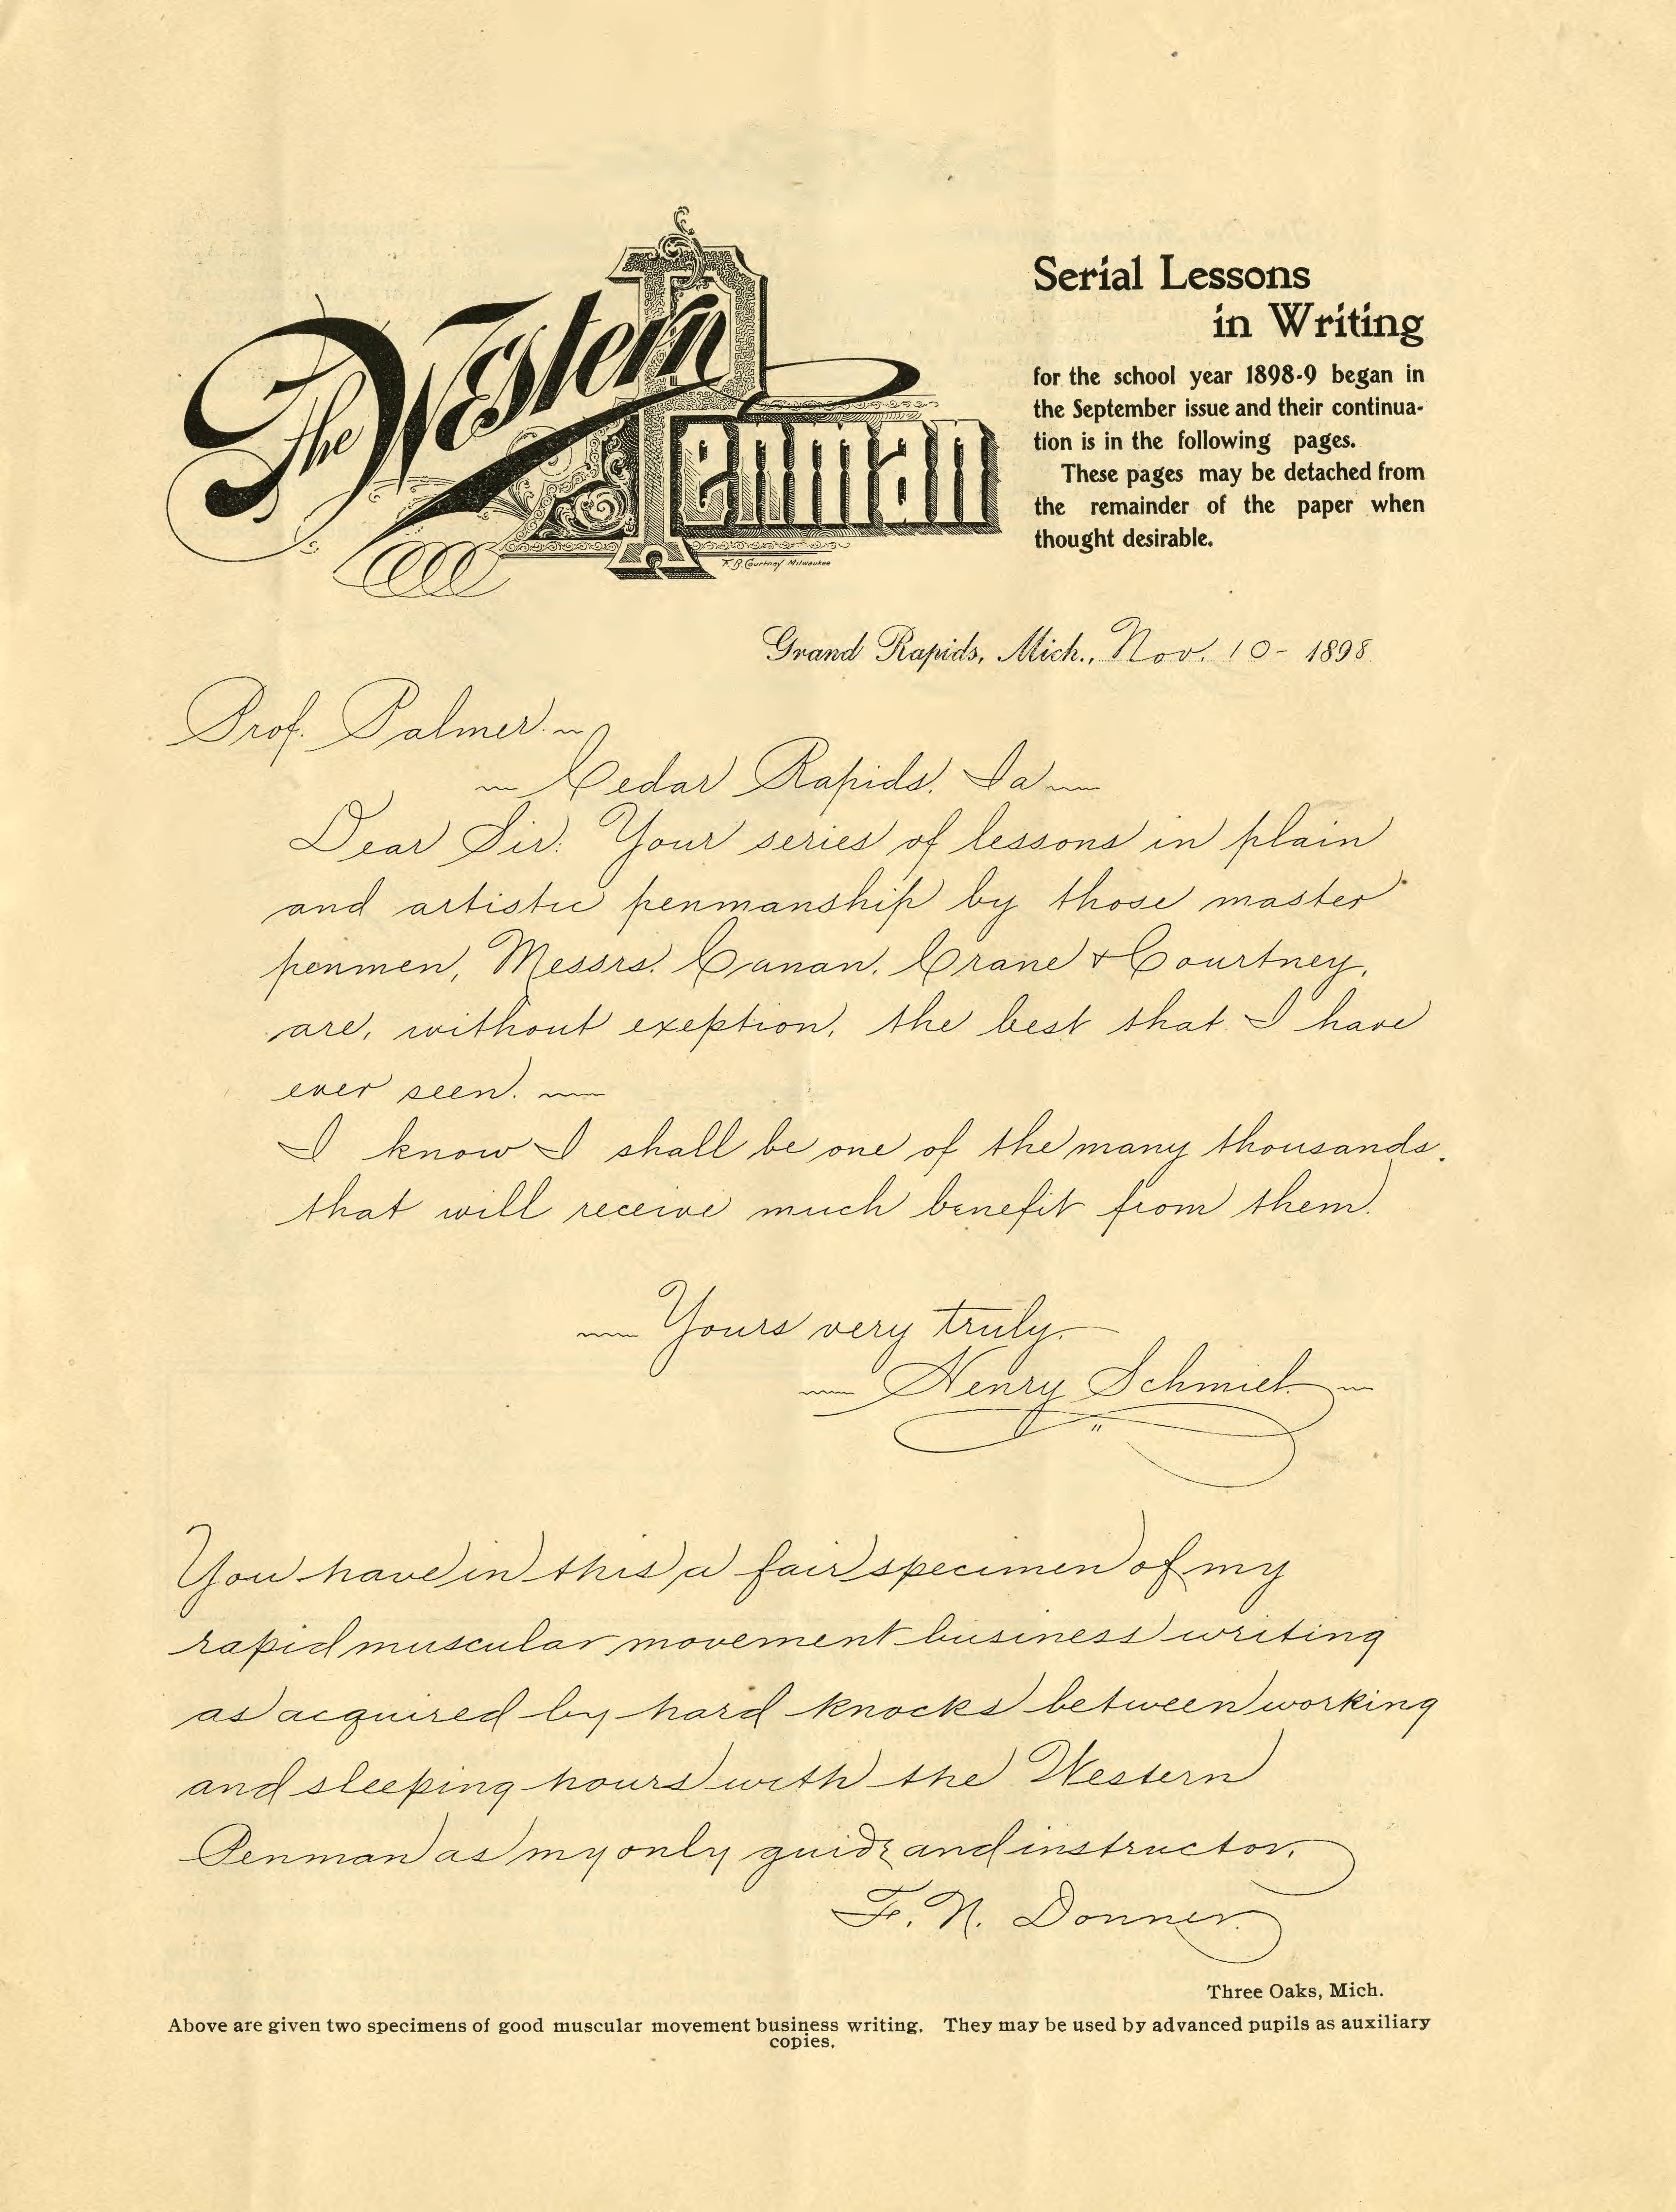 The Western Penman
F. B. Courtney Milwaukee
Serial Lessons
in Writing
for the school year 1898-9 began in
the September issue and their continua-
tion is in the following pages.
These pages may be detached from
the remainder of the paper when
thought desirable.
Grand Rapids, Mich., Nov. 10 - 1898
Prof. Palmer. ~
~ Cedar Rapids, Ia ~
Dear Sir: Your series of lessons in plain
and artistic penmanship by those master
penmen, Messrs. Canan, Crane & Courtney,
are, without exeption, the best that I have
ever seen. ~
I know I shall be one of the many thousands.
that will receive much benefit from them.
~ Yours very truly.
~ Henry Schmiel ~
You have in this a fair specimen of my
rapid muscular movement business writing
as acquired by hard knocks between working
and sleeping hours with the Western
Penman as my only guide and instructor.
F. N. Donner.
Three Oaks, Mich.
Above are given two specimens of good muscular movement business writing. They may be used by advanced pupils as auxiliary
copies.